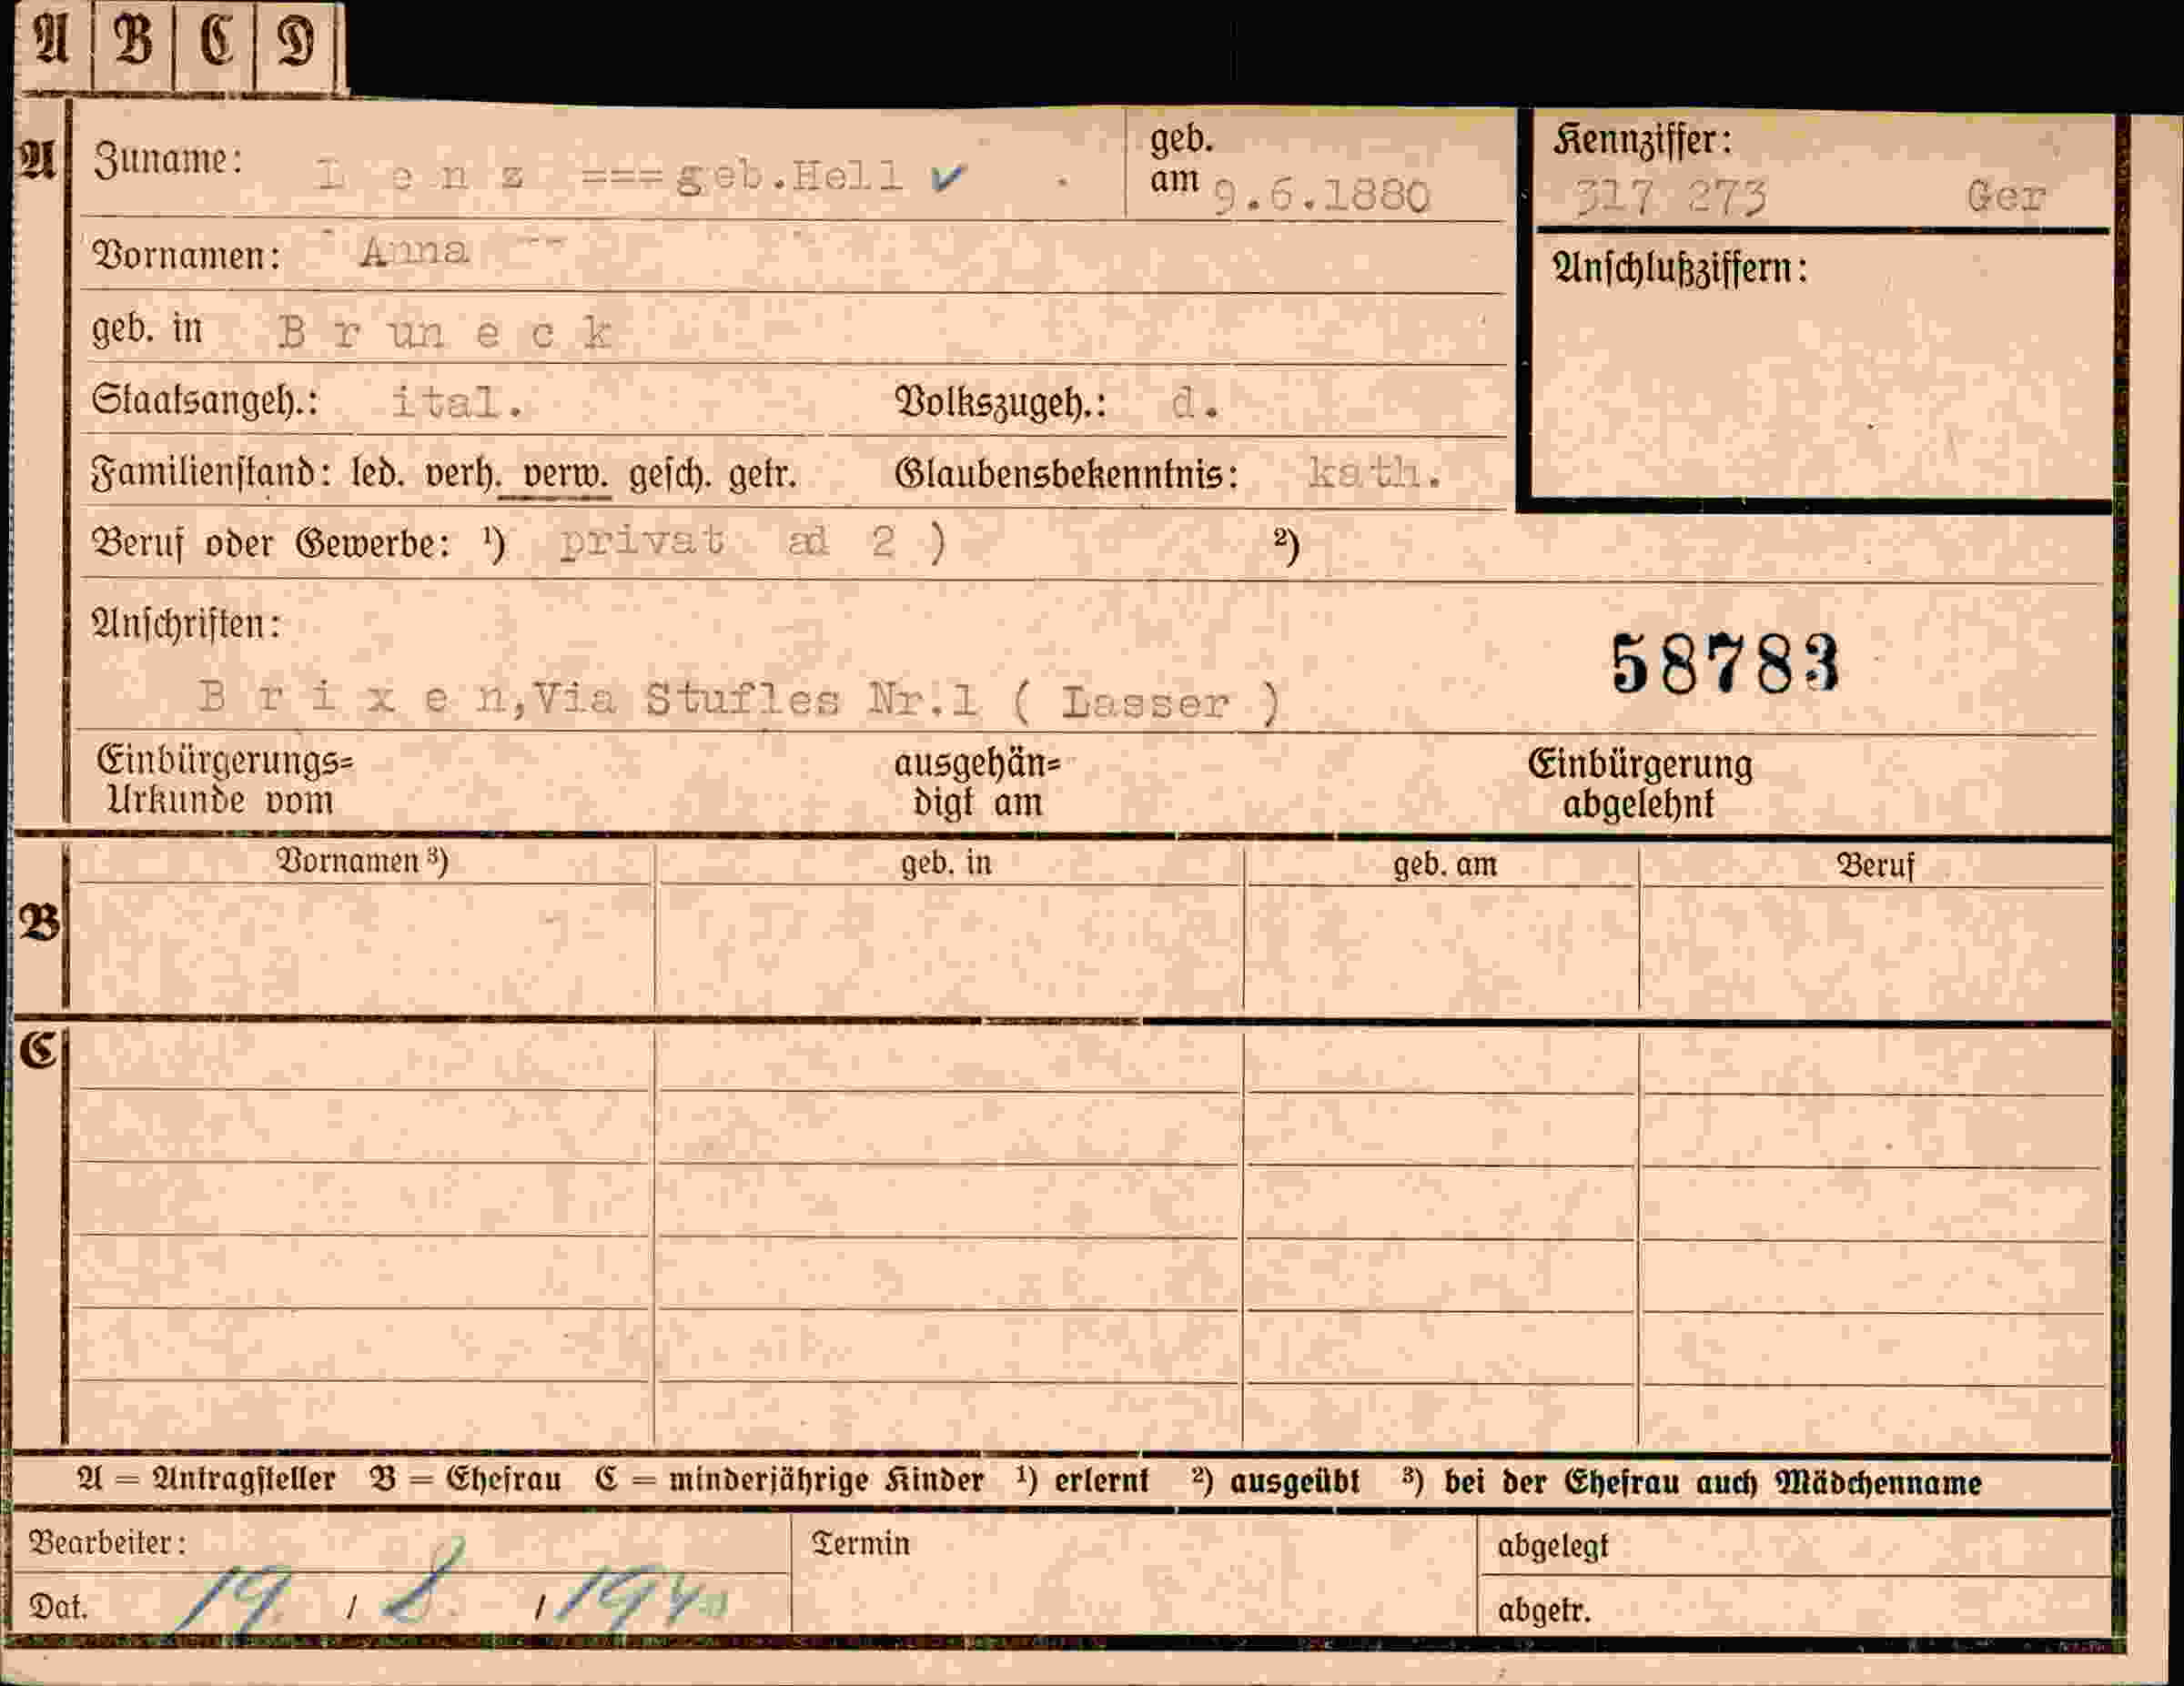 A B C D
A Zuname: L e n z === geb.Hell ✓ geb. am 9.6.1880 Kennziffer: 317 273 Ger
Vornamen: Anna
Anschlußziffern:
geb. in B r un e c k
Staatsangeh.: ital. Volkszugeh.: d.
Familienstand: led. verh. verw. gesch. getr. Glaubensbekenntnis: kath.
Beruf oder Gewerbe: ¹) privat ad 2 ) ²)
Anschriften:
58783
B r i x e n,Via Stufles Nr.1 ( Lasser )
Einbürgerungs= ausgehän= Einbürgerung
Urkunde vom digt am abgelehnt
Vornamen ³) geb. in geb. am Beruf
B
C
A = Antragsteller B = Ehefrau C = minderjährige Kinder ¹) erlernt ²) ausgeübt ³) bei der Ehefrau auch Mädchenname
Bearbeiter: Termin abgelegt
Dat. 19. / 8. / 1940 abgetr.